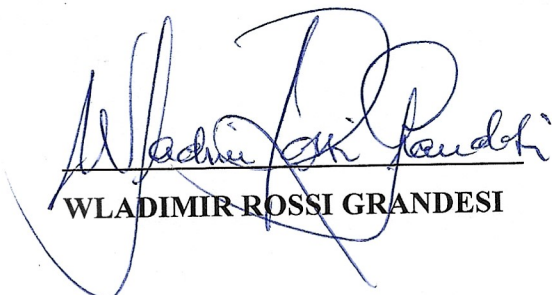 Wladimir Rossi Grandesi
WLADIMIR ROSSI GRANDESI